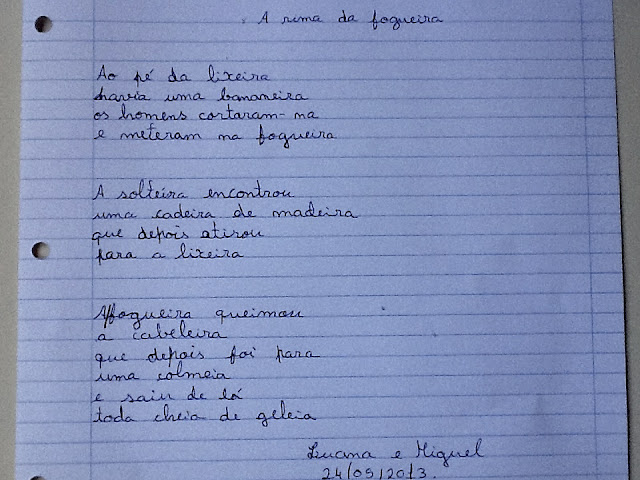 A rima da fogueira
Ao pé da lixeira
havia uma bananeira
os homens cortaram-na
e meteram na fogueira
A solteira encontrou
uma cadeira de madeira
que depois atirou
para a lixeira
A fogueira queimou
a cabeleira
que depois foi para
uma colmeia
e saiu de lá
toda cheia de geleia
Luana e Miguel
24/05/2013.